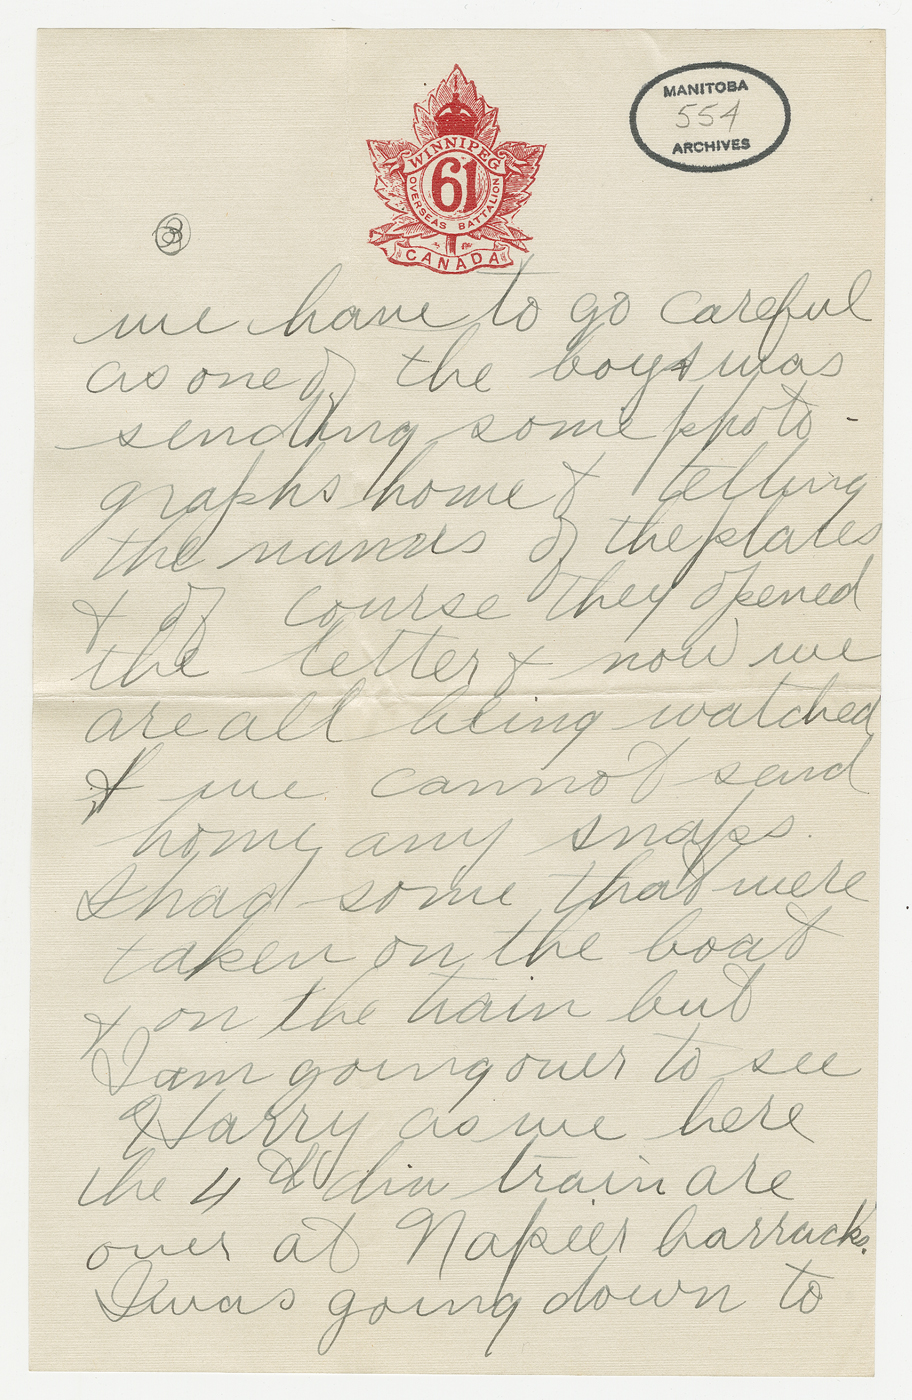 MANITOBA
554
ARCHIVES
WINNIPEG
61
OVERSEAS BATTALION
CANADA
3
we have to go careful
as one of the boys was
sending some photo-
graphs home & telling
the names of the places
& of course they opened
the letter & now we
are all being watched
& we cannot send
home any snaps.
I had some that were
taken on the boat
& on the train but
I am going over to see
Harry as we here
the 4th div train are
over at Napier barracks.
I was going down to